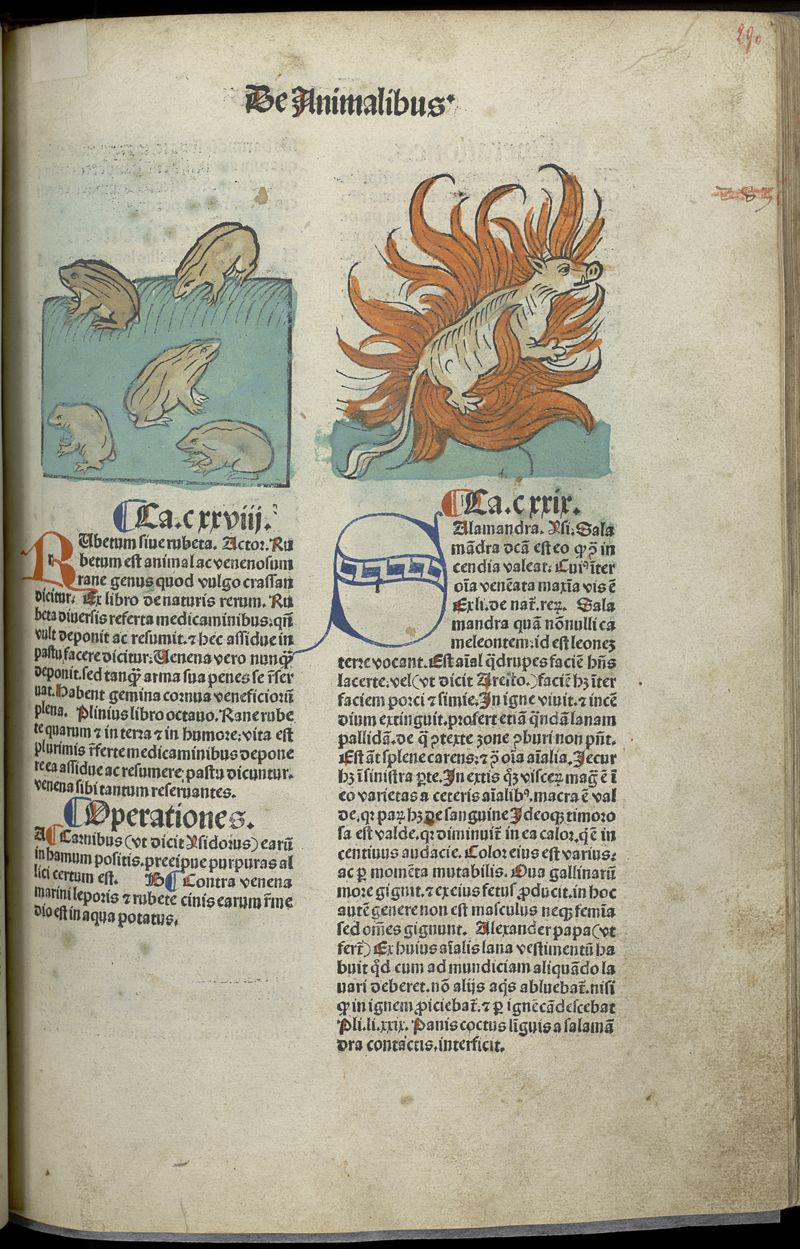 290
De Animalibus.
Ca. cxxviij.
RUbetum siue rubeta. Actor. Ru
betum est animal ac venenosum
rane genus quod vulgo crassan
dicitur. Ex libro de naturis rerum. Ru
beta diuersis referta medicaminibus: qn̄
vult deponit ac resumit. ⁊ hec assidue in
pastu facere dicitur: Uenena vero nunqꝫ
deponit. sed tanqꝫ arma sua penes se r̄ser
uat. Habent gemina cornua veneficiorū
plena. Plinius libro octauo. Rane rube
te quarum ⁊ in terra ⁊ in humore: vita est
plurimis r̄ferte medicaminibus depone
re ea assidue ac resumere pastu dicuntur.
venena sibi tantum reseruantes.
Operationes.
A Carnibus (vt dicit Ysidorus) earū
in hamum positis. precipue purpuras al
lici certum est. B Contra venena
marini leporis ⁊ rubete cinis earum r̄me
dio est in aqua potatus.
Ca. cxxix.
SAlamandra. Ysi. Sala
mādra dcā est eo ꝙ ꝯ in
cendia valeat. Cuiꝰ īter
oīa venēata maxīa vis ē
Ex li. de nat̄. reꝝ. Sala
mandra quā nōnulli ca
meleontem: id est leonez
terre vocant. Est aīal q̄drupes faciē hn̄s
lacerte. vel (vt dicit Areſto.) faciē hꝫ īter
faciem porci ⁊ simie. In igne viuit. ⁊ incē
dium extinguit. profert etiā q̄ndā lanam
pallidā. de q̄ ꝯtexte zone ꝯburi non pn̄t.
Est āt splene carens: ⁊ ꝓ oīa aīalia. Jecur
hꝫ ī sinistra ꝑte. In extis qꝫ visceꝝ mag̃ ē ī
eo varietas a ceteris aīalibꝰ. macra ē val
de. qꝛ paꝝ hꝫ de sanguine Ideoqꝫ timoro
sa est valde. qꝛ diminuit̄ in ea calor. q̄ ē in
centiuus audacie. Color eius est varius:
ac ꝑ momēta mutabilis. Oua gallinarū
more gignit. ⁊ ex eius fetuſ ꝓducit. in hoc
autē genere non est masculus neqꝫ femīa
sed om̄es gignunt. Alexander papa (vt
fert̄) Ex huius aīalis lana vestimentū ha
buit qd̄ cum ad mundiciam aliquādo la
uari deberet. nō alijs aq̄s abluebat̄. nisi
ꝙ in ignem ꝓiciebat̄. ⁊ ꝑ ignē cādescebat
Pli. li. xxix. Panis coctus lignis a salamā
dra contactis. interficit.